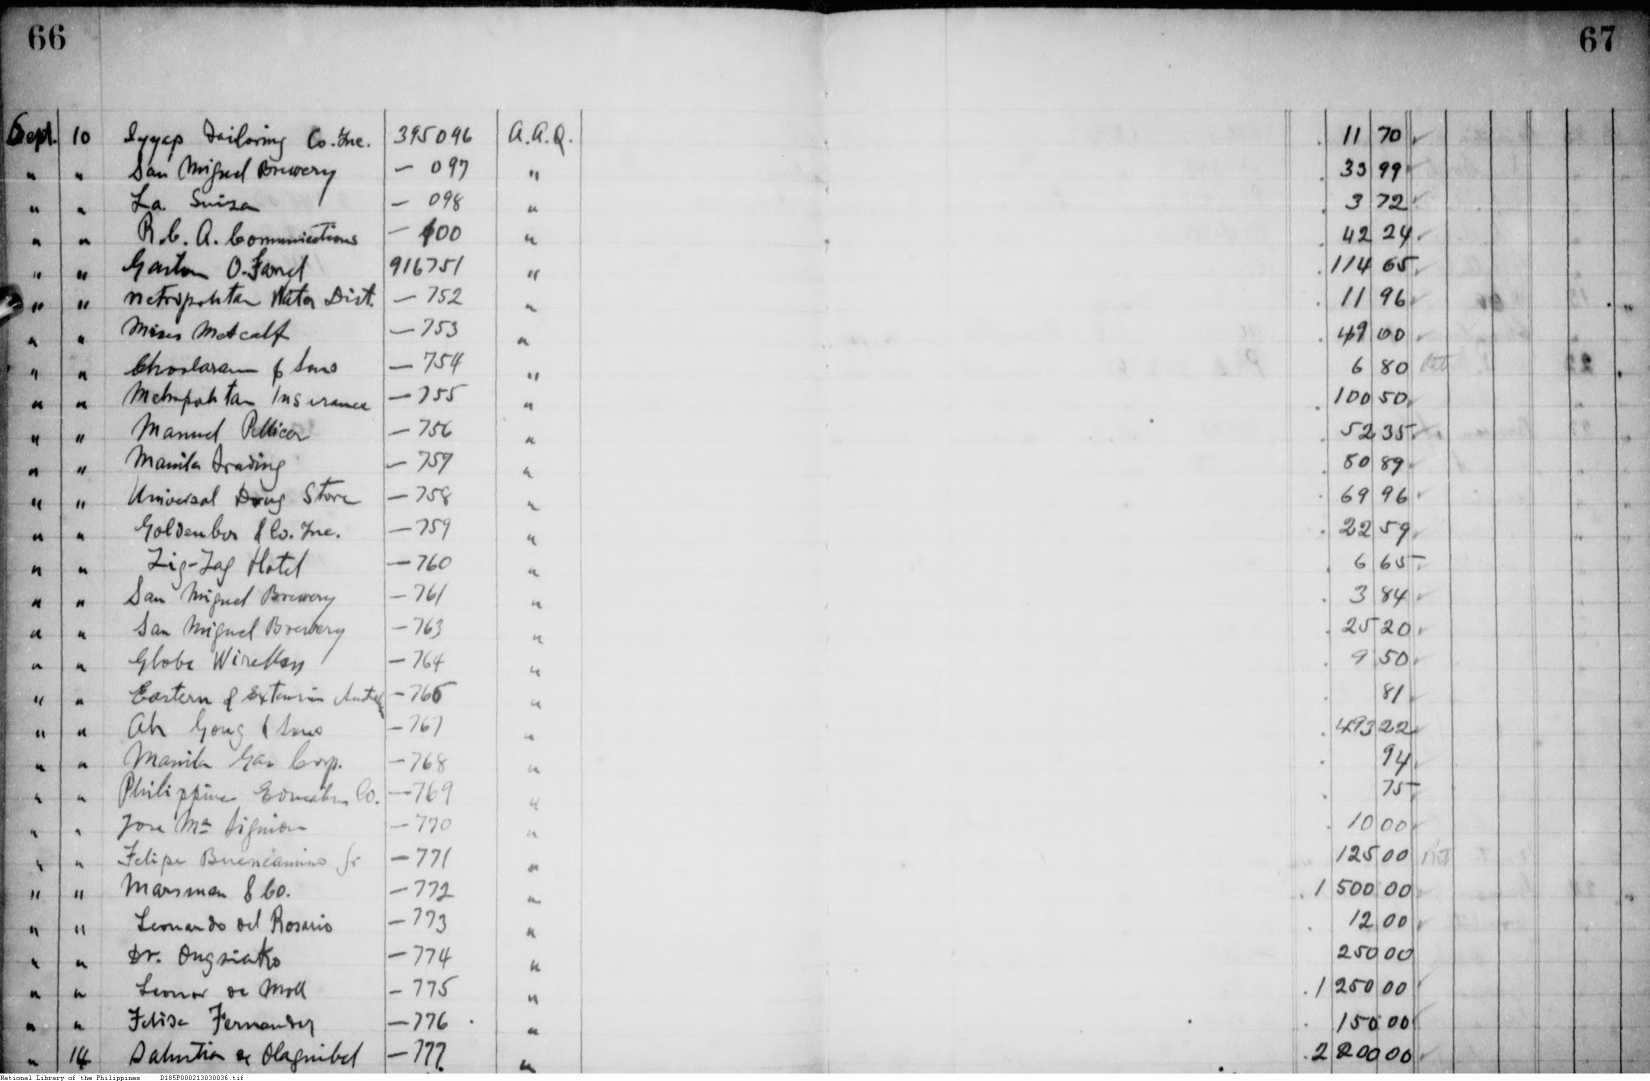 66 67
Sept. 10 Syyap Tailoring Co. Inc. 395096 A.A.Q. 11 70
" " San Miguel Brewery — 097 " 33 99
" " La Suiza — 098 " 3 72
" " R.C.A. Communications — 100 " 42 24
" " Gaston O.Farrel 916751 " 114 65
" " Metropolitan Water Dist. — 752 " 11 96
" " Misses Metcalf — 753 " 49 00
" " — 754 " 6 80
" " Metropolitan Insurance — 755 " 100 50
" " Manuel Pellicer — 756 " 52 35
" " Manila Trading — 757 " 50 89
" " Universal Drug Store — 758 " 69 96
" " Goldenberg & Co. Inc. — 759 " 22 59
" " Zig-Zag Hotel — 760 " 6 65
" " San Miguel Brewery — 761 " 3 84
" " San Miguel Brewery — 763 " 25 20
" " Globe Wireless — 764 " 9 50
" " Eastern & Extension — 765 " 81
" " Ah Gong & Sons — 767 " 493 22
" " Manila Gas Corp. — 768 " 94
" " Philippine Education Co. — 769 " 75
" " Jose Ma — 770 " 10 00
" " Felipe Buencamino Jr — 771 " 125 00
" " Marsman & Co. — 772 " 1 500 00
" " Leonardo del Rosario — 773 " 12 00
" " Dr. Ongsiako — 774 " 250 00
" " Leonor de Moll — 775 " 1 250 00
" " Felisa Fernandez — 776 " 150 00
" 14 de Olaguibel — 777 " 2 200 00
National Library of the Philippines D185P000213030036.tif